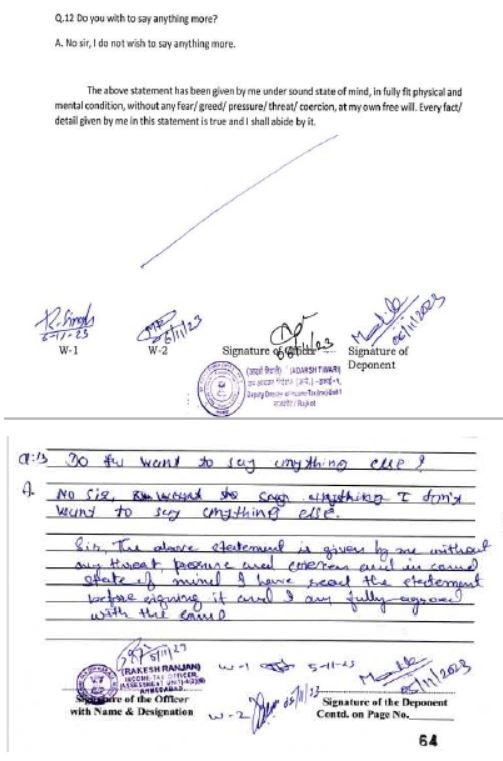 Q.12 Do you with to say anything more?
A. No sir, I do not wish to say anything more.
The above statement has been given by me under sound state of mind, in fully fit physical and
mental condition, without any fear/ greed/ pressure/ threat/ coercion, at my own free will. Every fact/
detail given by me in this statement is true and I shall abide by it.
R. Singh
6-11-23
W-1
06/11/23
W-2
06/11/23
Signature of Officer
06/11/2023
Signature of
Deponent
(ADARSH TIWARI)
Rajkot
Q:13 Do you want to say anything else?
A. No sir, say anything I don't
want to say anything else.
Sir, The above statement is given by me without
any threat, pressure and coercion and in sound
state of mind I have read the statement
before signing it and I am fully agreed
with the same
5/11/23
(RAKESH RANJAN)
INCOME TAX OFFICER
AHMEDABAD
Signature of the Officer
with Name & Designation
W-1 5-11-23
W-2 05/11/23
05/11/2023
Signature of the Deponent
Contd. on Page No.
64